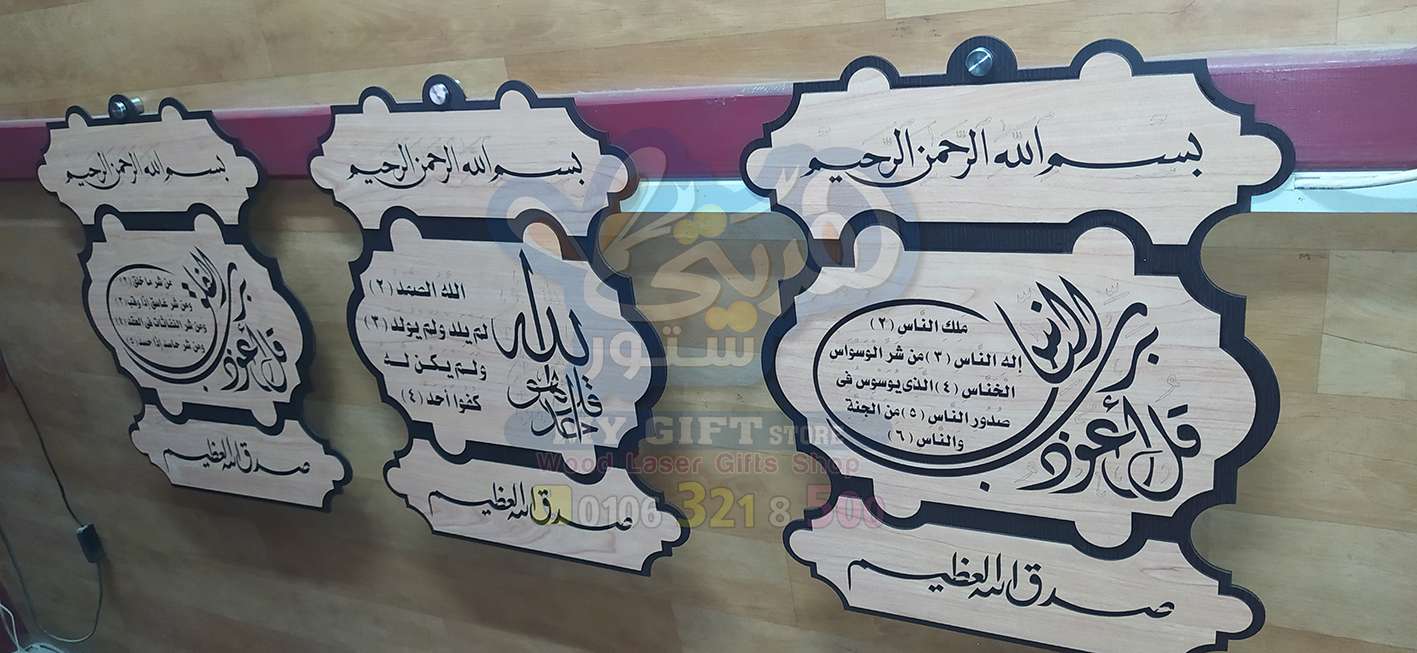 بسم الله الرحمن الرحيم
قل أعوذ برب الناس
ملك الناس (٢)
إله الناس (٣) من شر الوسواس
الخناس (٤) الذي يوسوس فى
صدور الناس (٥) من الجنة
والناس (٦)
صدق الله العظيم
بسم الله الرحمن الرحيم
قل هو الله أحد
الله الصمد (٢)
لم يلد ولم يولد (٣)
ولم يكن له
كفوا أحد (٤)
صدق الله العظيم
بسم الله الرحمن الرحيم
قل أعوذ برب الفلق
من شر ما خلق (٢)
ومن شر غاسق إذا وقب (٣)
ومن شر النفاثات فى العقد (٤)
ومن شر حاسد إذا حسد (٥)
صدق الله العظيم
ستور
MY GIFT STORE
Wood Laser Gifts Shop
0106 321 8 500